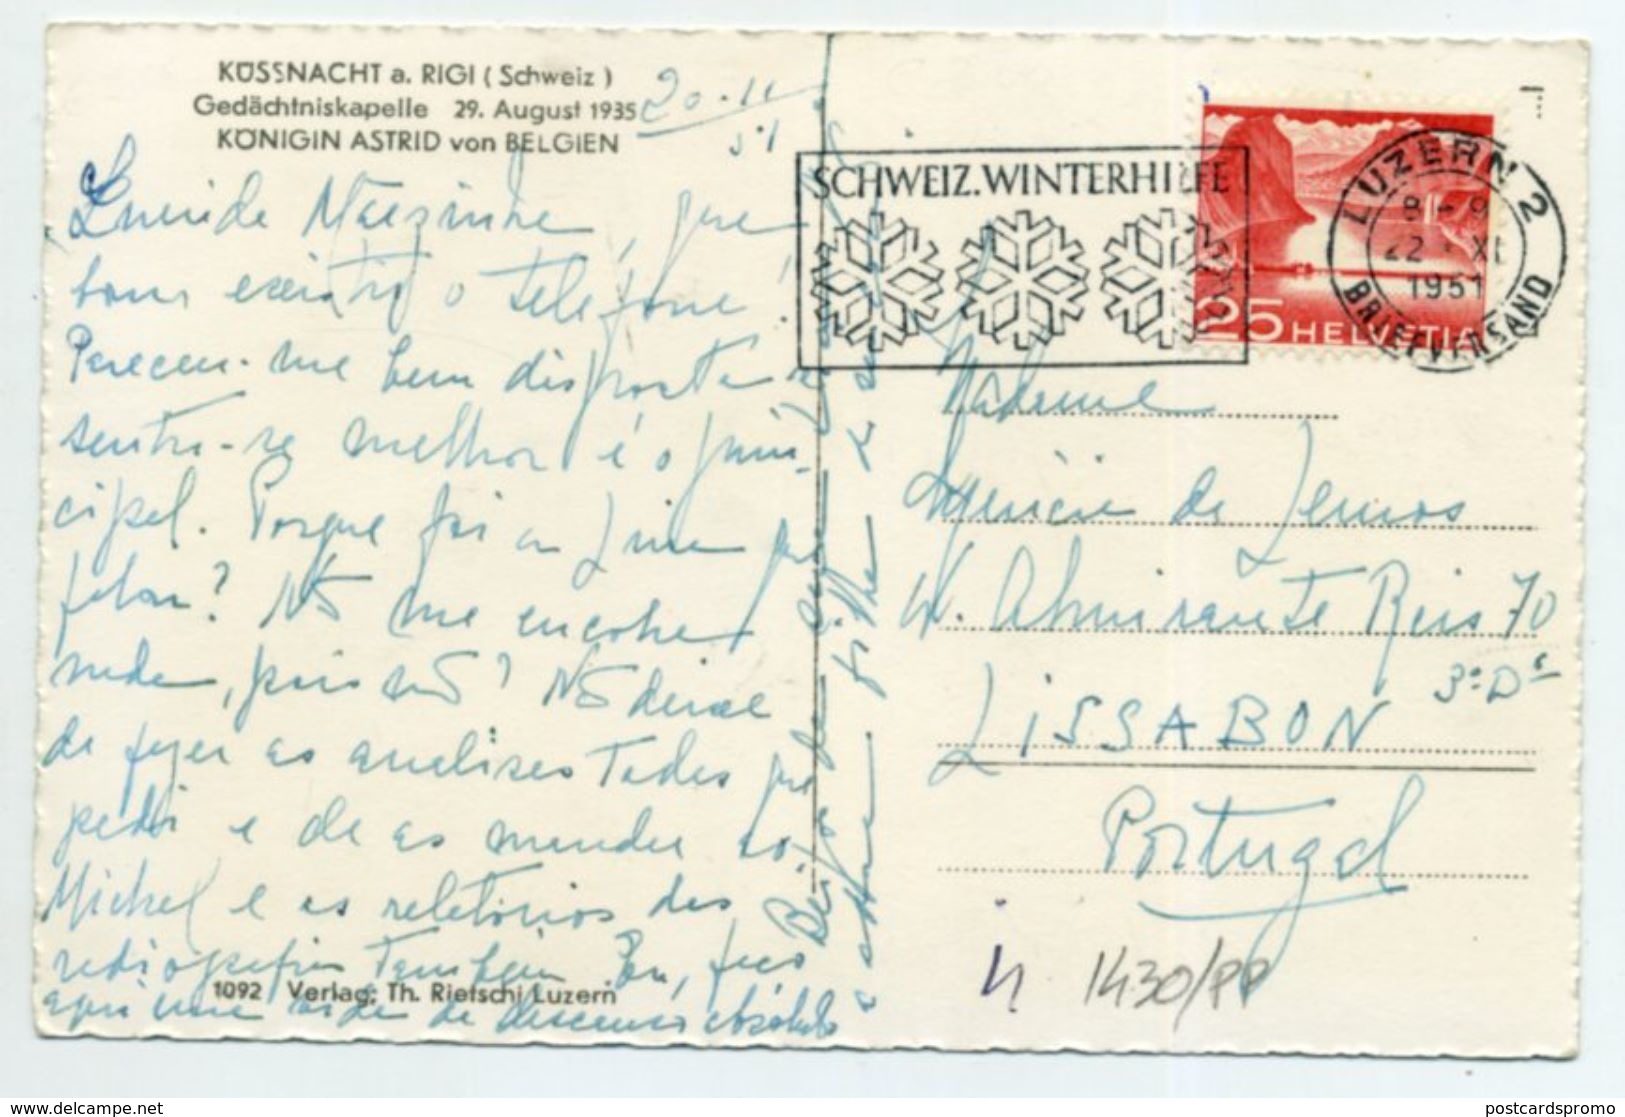 KÜSSNACHT a. RIGI (Schweiz)
Gedächtniskapelle 29. August 1935
KÖNIGIN ASTRID von BELGIEN
20-11
51
Querida Mãezinha, que
bom existir o telefone!
Pareceu-me bem disposta!
sentir-se melhor é o prin-
cipal. Porque foi a
falar? Não me
nada, pois não? Não deixe
de fazer as analises todas que
pedi e de as mandar ao
Michel e os relatórios das
radiografias também. Eu, faço
aqui uma de descanso absoluto
SCHWEIZ. WINTERHILFE
LUZERN 2
8-9
22 XI
1951
BRIEFVERSAND
25 HELVETIA
Madame
de Lemos
Av. Almirante Reis 70
3º Dº
LISSABON
Portugal
1430/PP
1092 Verlag: Th. Rietschi Luzern
www.delcampe.net
postcardspromo